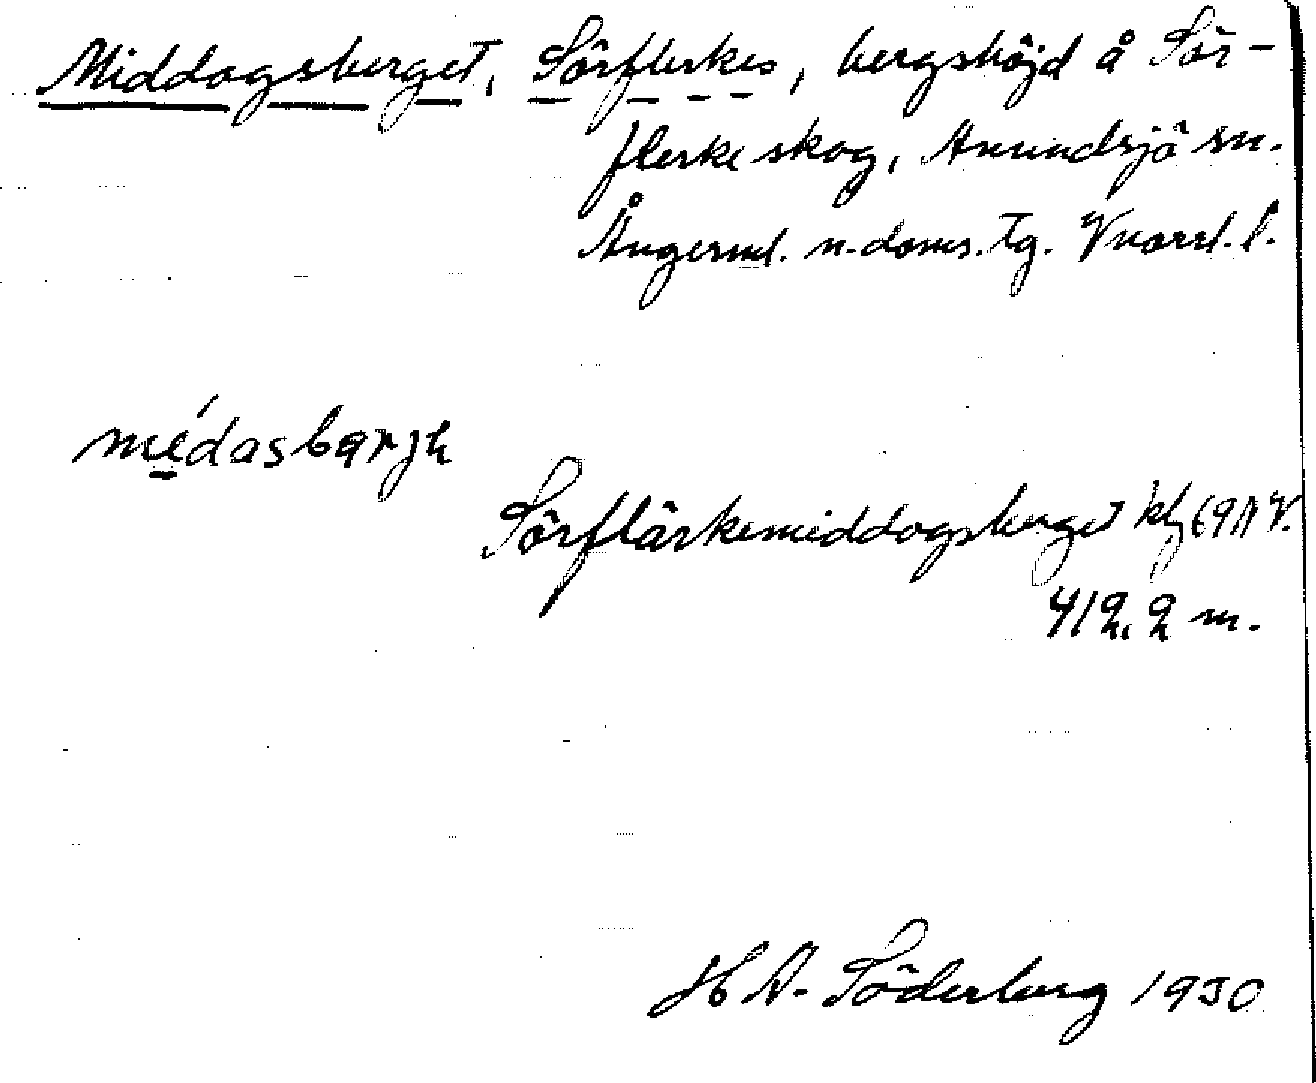 Middagsberget, Sörflerkes, bergshöjd å Sör-
flerke skog, Anundsjö sn.
Ångerml. n. doms. tg. Vnorrl. l.
Sörflärkemiddagsberget
412,2 m.
H A. Söderberg 1930